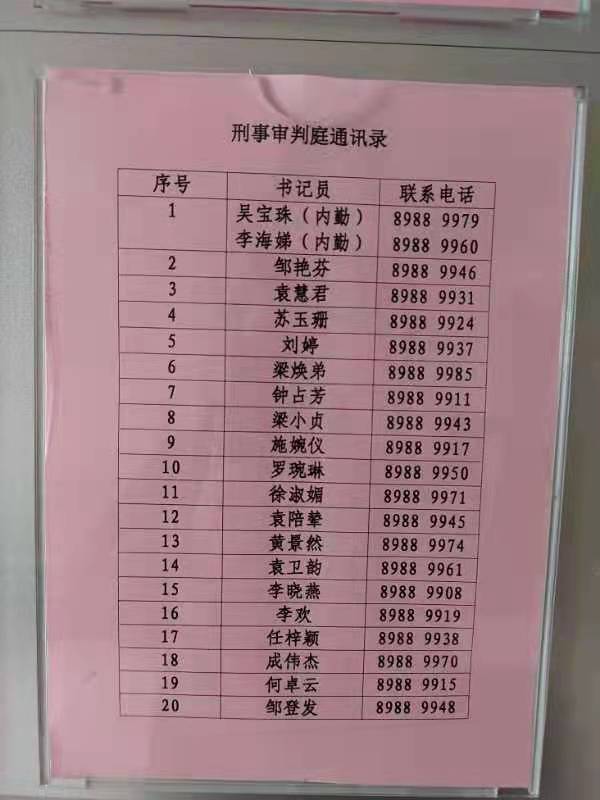 刑事审判庭通讯录
序号 书记员 联系电话
1 吴宝珠（内勤） 8988 9979
李海娣（内勤） 8988 9960
2 邹艳芬 8988 9946
3 袁慧君 8988 9931
4 苏玉珊 8988 9924
5 刘婷 8988 9937
6 梁焕弟 8988 9985
7 钟占芳 8988 9911
8 梁小贞 8988 9943
9 施婉仪 8988 9917
10 罗琬琳 8988 9950
11 徐淑媚 8988 9971
12 袁陪辇 8988 9945
13 黄景然 8988 9974
14 袁卫韵 8988 9961
15 李晓燕 8988 9908
16 李欢 8988 9919
17 任梓颖 8988 9938
18 成伟杰 8988 9970
19 何卓云 8988 9915
20 邹登发 8988 9948